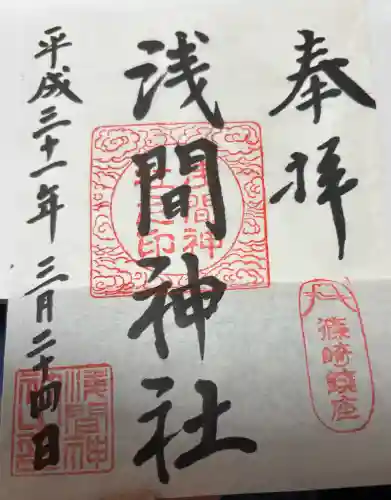 奉拝
篠崎鎮座
浅間神社
浅間神
平成三十一年三月二十四日
浅間神